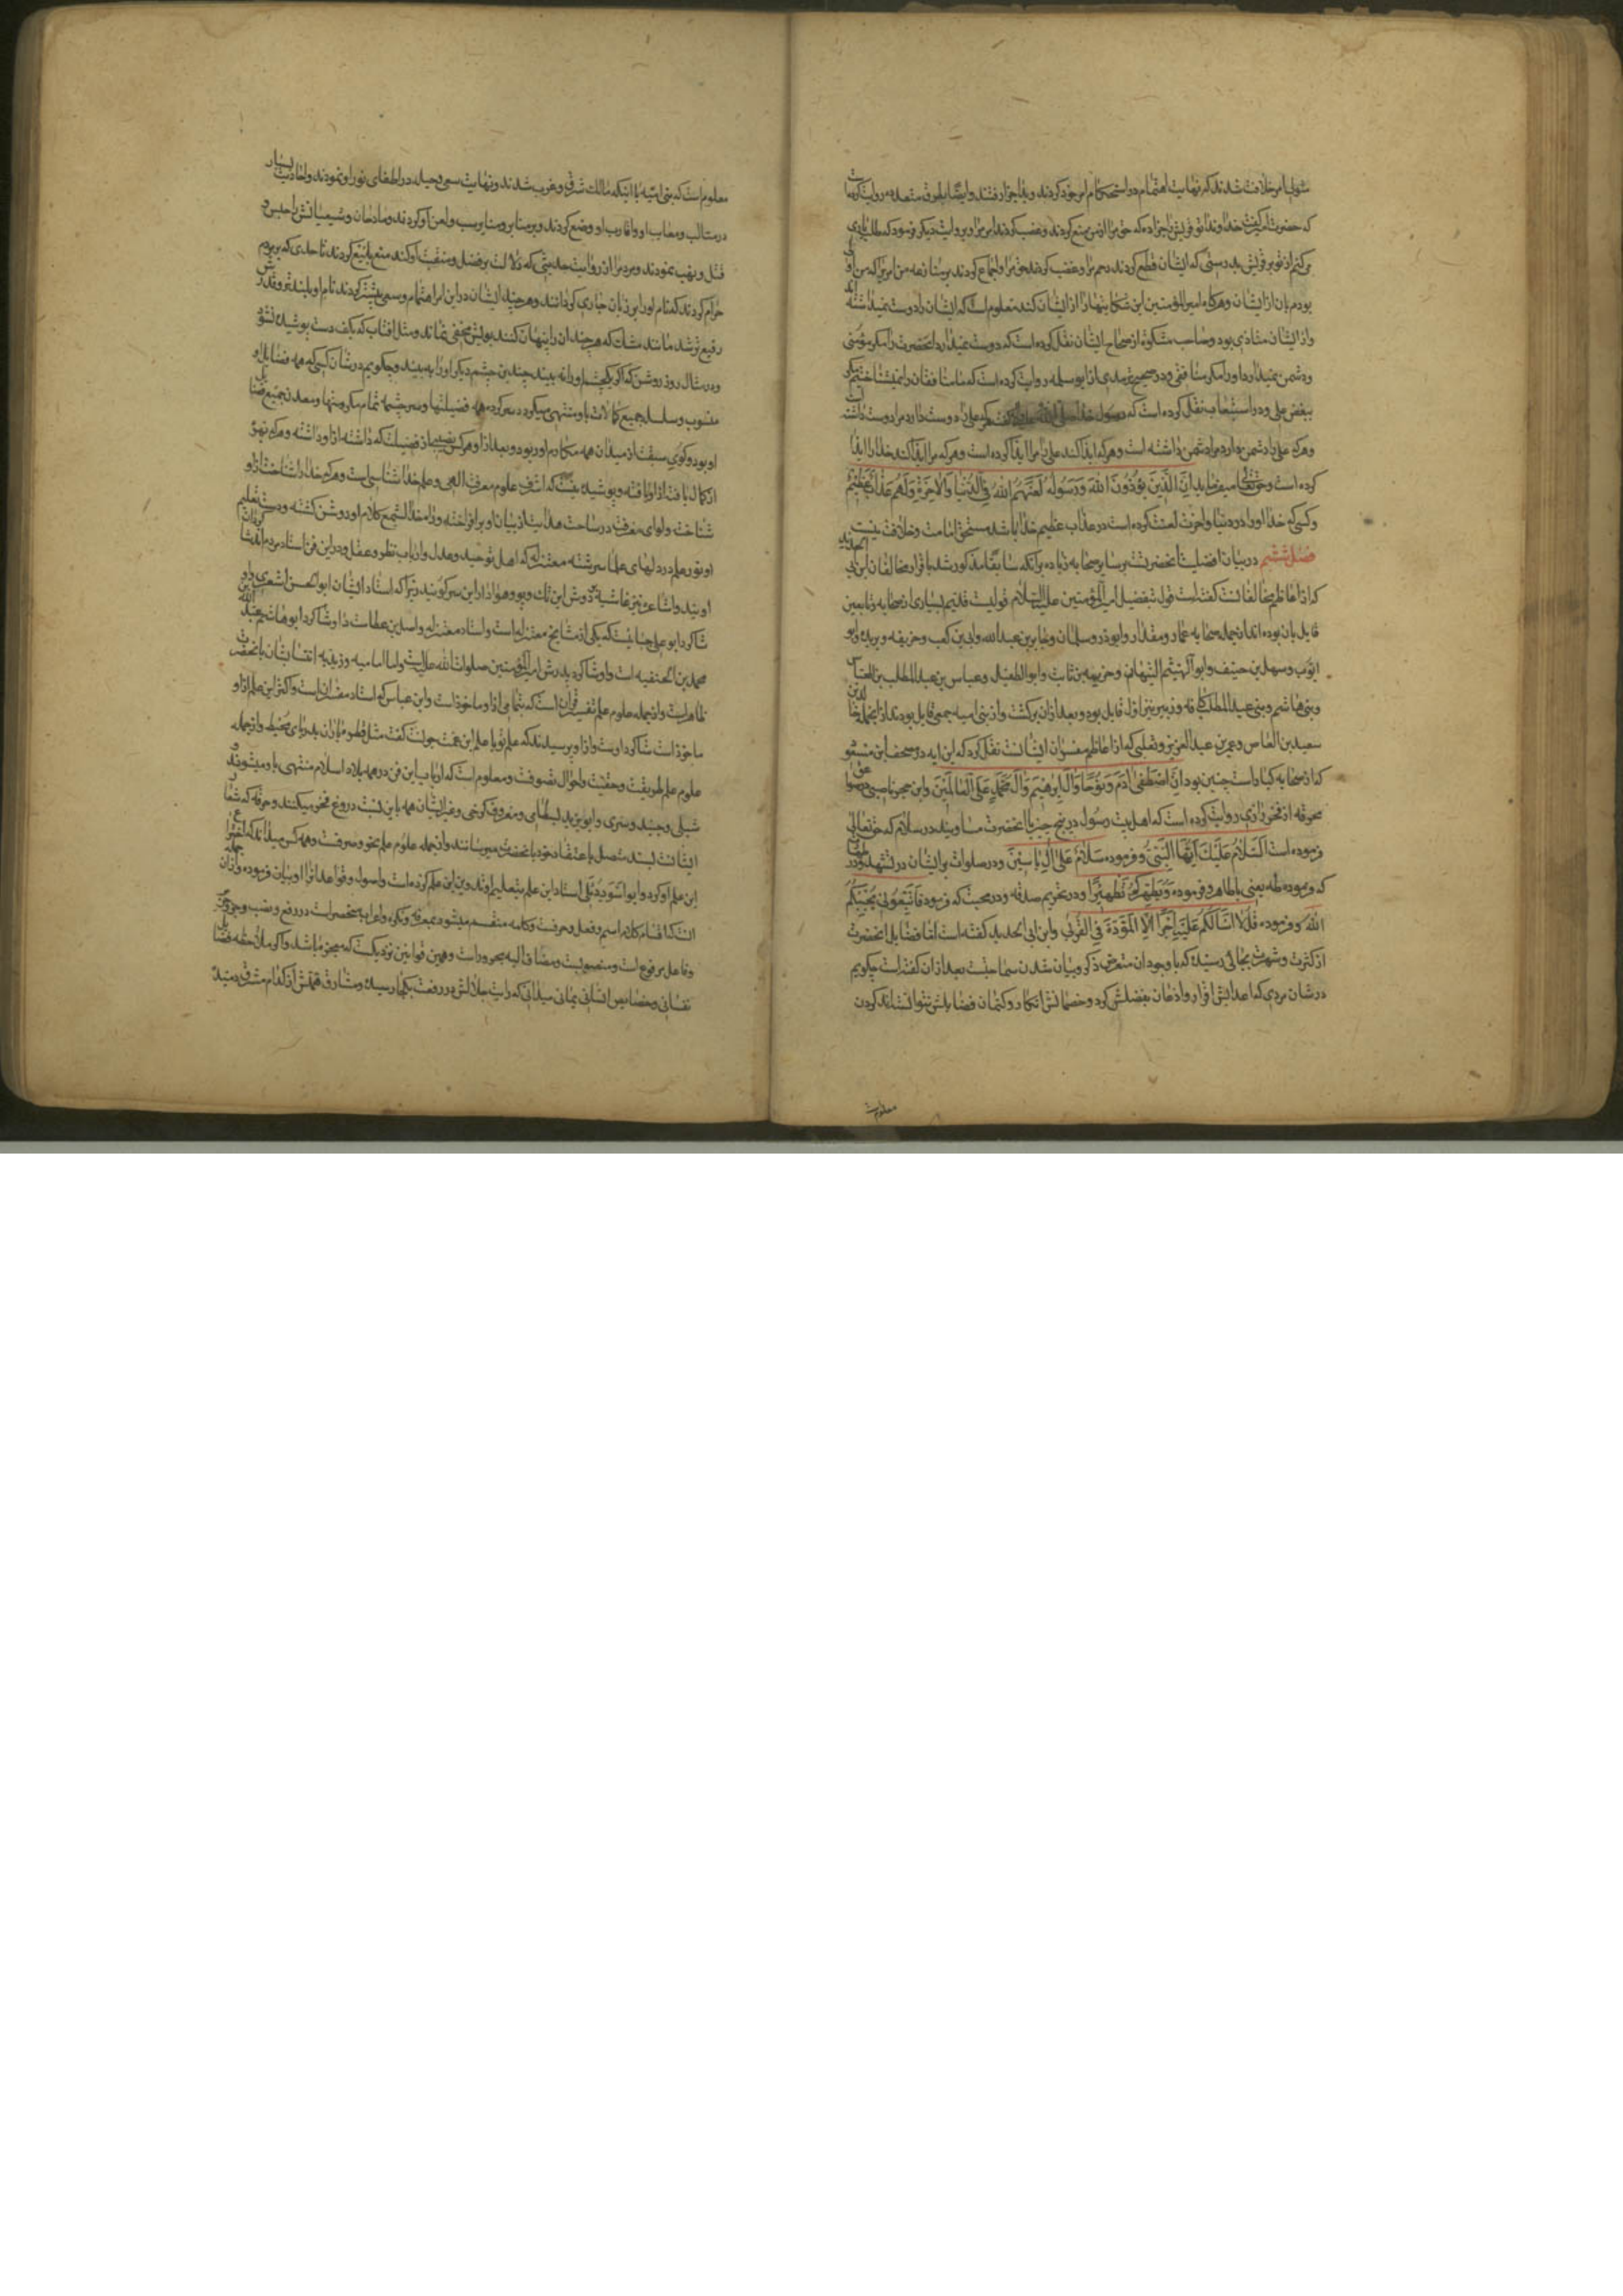 متولی امر خلافت شدند که نهایت اهتمام در استحکام امر خود کردند و بلا اجزا رفتند و ایضا بطرق متعدده روایت کرده
که حضرت امیر گفت خداوندا تو قریش را جزا ده که حق مرا از من منع کردند و غصب کردند امر مرا و بروایت دیگر فرمود که طلب یاری
میکنم از تو بر قریش بدرستی که ایشان قطع کردند رحم مرا و غصب کردند حق مرا و اجماع کردند بر منازعه من امریرا که من اولی
بودم بان از ایشان و هرگاه امیر المؤمنین این شکایتها را از ایشان کند معلوم است که ایشان را دوست نمیداشته
و از ایشان متأذی بود و صاحب مشکوة از صحاح ایشان نقل کرده است که دوست نمیدارد آنحضرت را مگر مؤمنی
و دشمن نمیدارد او را مگر منافقی و در صحیح ترمذی از ابوسلمه روایت کرده است که ما منافقان را نمیشناختیم مگر
ببغض علی و در استیعاب نقل کرده است که رسول خدا صلی الله علیه و اله گفت هر که علی را دوست دارد مرا دوست داشته
و هر که علی را دشمن دارد مرا دشمن داشته است و هر که ایذا کند علی را مرا ایذا کرده است و هر که مرا ایذا کند خدا را ایذا
کرده است و حق تعالی میفرماید ان الَّذِینَ یُؤْذُونَ اللّهَ وَرَسُولَهُ لَعَنَهُمُ اللّهُ فِی الدُّنْیَا وَالْآخِرَةِ وَلَهُم عَذَابٌ عَظِیمٌ
و کسی که خدا او را در دنیا و آخرت لعنت کرده است و در عذاب عظیم خدا باشد مستحق امامت و خلافت نیست
فصل ششم در بیان افضلیت آنحضرت بر سایر صحابه زیاده بر آنکه سابقا مذکور شد باقرار مخالفان ابن ابی الحدید
که از اعاظم مخالفانست گفته است قول بتفضیل امیر المؤمنین علیه السلام قولیست قدیم بسیاری از صحابه و تابعین
قایل بان بوده اند از جمله صحابه عمار و مقداد و ابوذر و سلمان و جابر بن عبد الله و ابی بن کعب و حذیفه و بریده و ابو
ایوب و سهل بن حنیف و ابو الهیثم التیهان و خزیمه بن ثابت و ابو الطفیل و عباس بن عبد المطلب بن العباس
و بنی هاشم و بنی عبد المطلب کافه و زبیر نیز اول قایل بود و بعد از ان برکشت و از بنی امیه جمعی قایل بودند از انجمله خالد بن
سعید بن العاص و عمر بن عبد العزیز و ثعلبی که از اعاظم مفسران ایشانست نقل کرده که این ایه در مصحف ابن مسعود
که از صحابه کبار است چنین بود اِنَّ اصْطَفَی آدَمَ وَنُوحًا وَآلَ اِبْرٰهِیمَ وَآلَ مُحَمَّدٍ عَلَی الْعَالَمِینَ و ابن حجر ناصبی در صواعق
محرقه از فخر رازی روایت کرده است که اهل بیت رسول در پنج چیز با آنحضرت مساویند در سلام که حق تعالی
فرموده است اَلسَّلَامُ عَلَیْکَ اَیُّهَا النَّبِیُّ و فرموده سَلَامٌ عَلَی اٰلِ یَاسِینَ و در صلوات بر ایشان در تشهد و در طهارت
که فرموده طه یعنی یا طاهر و فرموده وَیُطَهِّرَکُمْ تَطْهِیرًا و در تحریم صدقه و در محبت که فرمود فَاتَّبِعُونِی یُحْبِبْکُمُ
اللّه و فرموده قُل لَا اَسْاَلُکُمْ عَلَیْهِ اَجْرًا اِلَّا الْمَوَدَّةَ فِی الْقُرْبَی و ابن ابی الحدید گفته است اما فضایل انحضرت
از کثرت و شهرت بجائی رسیده که با وجود ان متعرض ذکر و بیان شدن سماجت است بعد از ان گفته است چگویم
در شان مردی که اعدایش اقرار و اذعان بفضلش کرد و خصمانش انکار و کتمان فضایلش نتوانستند کردن
معلوم است
معلوم است که بنی امیه با اینکه مالک شرق و غرب شدند و نهایت سعی و حیله در اطفای نور او نمودند و احادیث بسیار
در مثالب و معایب او و اقارب او وضع کردند و بر منابر و منایر سب و لعن او کردند و مادحان و شیعیانش را حبس و
قتل و نهب نمودند و مردم را از روایت حدیثی که دلالت بر فضل و منقبت او کند منع بلیغ کردند تا حدی که بر مردم
حرام کردند که نام او را بر زبان جاری کردانند و هر چند ایشان در این امر اهتمام و سعی بیشتر کردند نام او بلندتر و قدرش
رفیع تر شد مانند مشک که هر چند ان را پنهان کنند بویش مخفی نماند و مثل افتاب که بکف دست پوشیده نشود
و در مثال روز روشن که اگر یکچشم او را نه بیند چندین چشم دیگر او را به بیند و چگویم در شان کسی که همه فضایل باو
منسوب و سلسله جمیع کمالات باو منتهی میگردد سرکرده همه فضیلتها و سرچشمه تمام مکرمتها و معدن جمیع فضایل
او بود و گوی سبقت از میدان همه مکارم او ربود و بعد از او هر کس نصیبی از فضیلت که داشته از او داشته و هر که بهره
از کمال یافته از او یافته و پوشیده نیست که اشرف علوم معرفت الهی و علم خدا شناسی است و هر که خدا را شناخت از او
شناخت و لوای معرفت در ساحت هدایت از بیان او برافراخته و راه خدا بشمع کلام او روشن گشته و دست تعلیم
او نور علم در دلهای علما سرشته معتزله که اهل توحید و عدل و ارباب نظر و عقلند و در این فن استاد مردم اند شاگردان
اویند و اشاعره نیز غاشیه بر دوش این تک و پو و هوادار این سر کویند زیرا که استاد ایشان ابو الحسن اشعری
شاکرد ابو علی جبائیست که یکی از مشایخ معتزله است و استاد معتزله واصل بن عطاست و او شاکرد ابو هاشم عبد الله بن
محمد بن الحنفیه است و او شاگرد پدرش امیر المؤمنین صلوات الله علیه است و اما امامیه و زیدیه انتسابشان بانحضرت
ظاهر است و از جمله علوم علم تفسیر قران است که بتمامی از او ماخوذ است و ابن عباس که استاد مفسران است و اکثر این علم از او
ماخوذ است شاگرد اوست و از او پرسیدند که علم تو با علم ابن عمت چونست گفت مثل قطره باران بدریای محیط و از جمله
علوم علم طریقت و حقیقت و احوال تصوفست و معلوم است که ارباب این فن در همه بلاد اسلام منتهی باو میشوند و
شبلی و جنید و سری و ابو یزید بسطامی و معروف کرخی و غیر ایشان همه باین نسبت دروغ فخر میکنند و خرقه که شعار
ایشانست بسند متصل باعتقاد خود بانحضرت میرسانند و از جمله علوم علم نحو و صرفست و همه کس میداند که اختراع
این علم او کرد و ابو الاسود دئلی استاد این علم بتعلیم او تدوین این علم کرده است و اصول و قواعد انرا او بیان فرموده و از ان جمله
انست که اقسام کلام اسم و فعل و حرفست و کلمه منقسم میشود بمعرفه و نکره و اعراب منحصر است در رفع و نصب و جر و جزم
و فاعل مرفوع است و مفعول منصوبست و مضاف الیه مجرور است و همین قوانین نزدیکست که معجزه باشد و اگر ملاحظه فضایل
نفسانی و خصایص انسانی نمائی میدانی که رایت جلالش در رفعت بکجا رسیده و مشارق قدرش از کدام مشرق دمیده